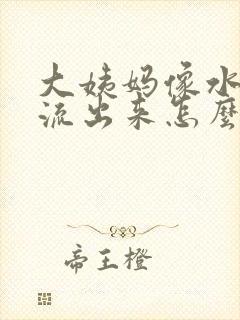 大姨妈像水
流出来怎麽
帝王橙